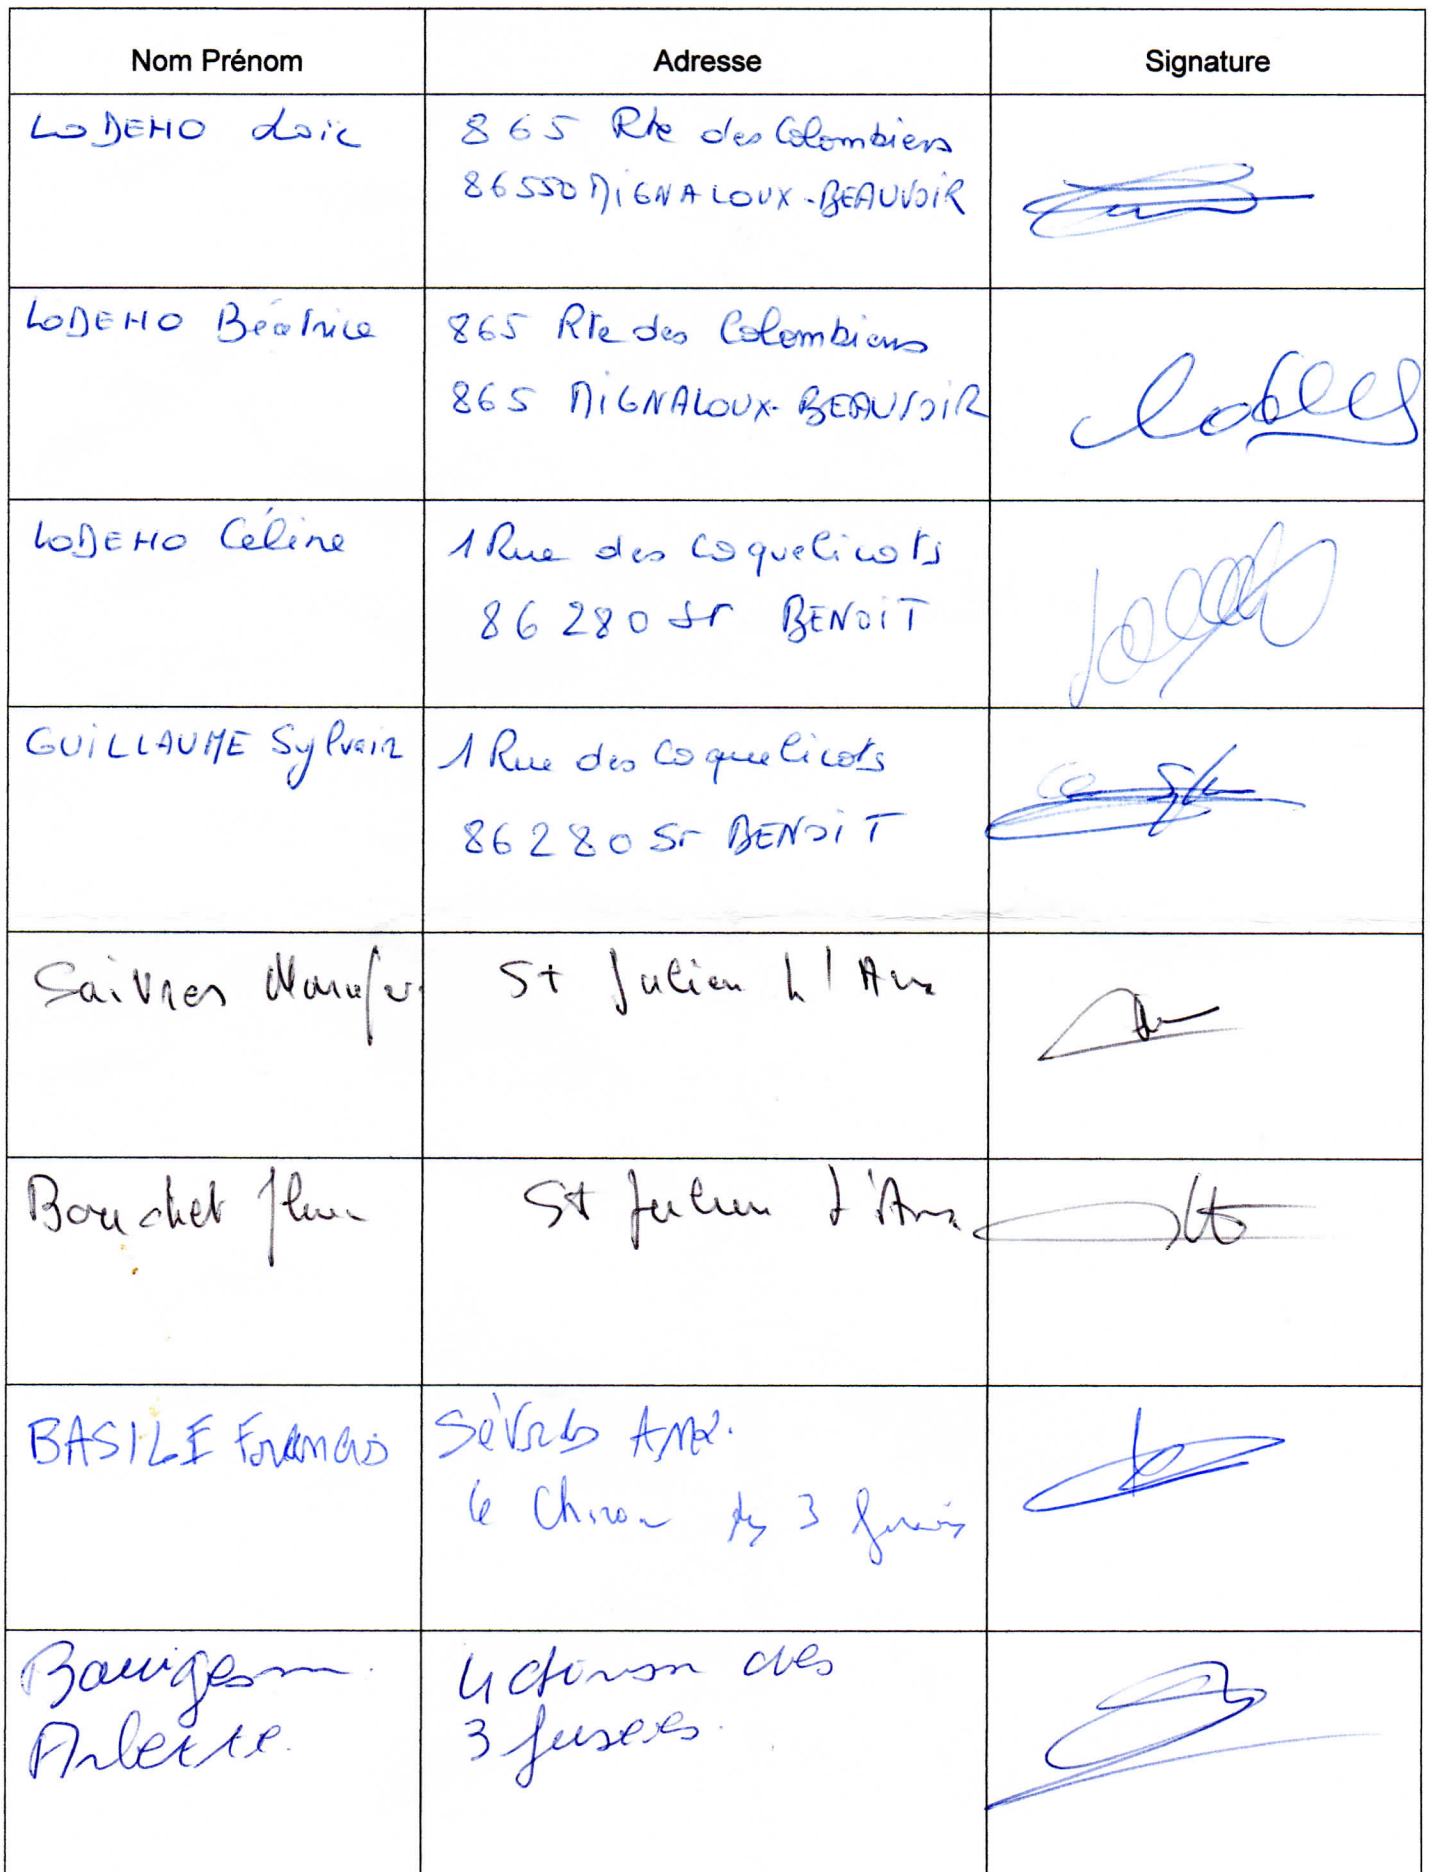 Nom Prénom Adresse Signature
LODEHO Loïc
865 Rte des Colombiers
86550 MIGNALOUX-BEAUVOIR
LODEHO Béatrice
865 Rte des Colombiers
865 MIGNALOUX-BEAUVOIR
LODEHO Céline
1 Rue des Coquelicots
86280 ST BENOIT
GUILLAUME Sylvain
1 Rue des Coquelicots
86280 ST BENOIT
Saivres
St Julien L'Ars
Bouchet
St Julien L'Ars
BASILE Francis
Sèvres Anx.
3
Arlette
des
3 fusées.